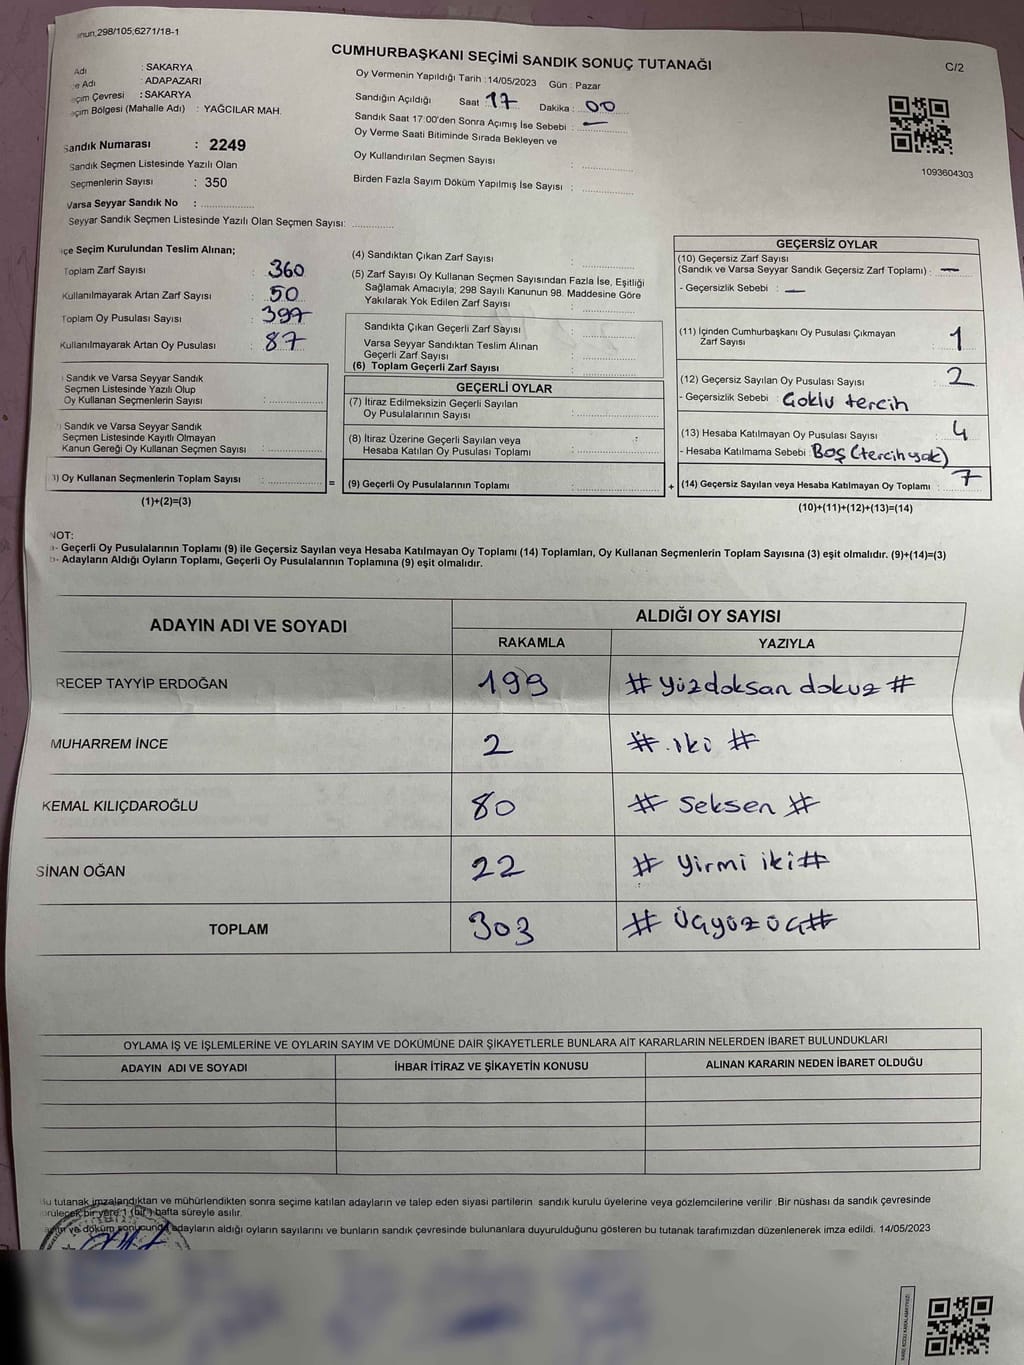 anun,298/105;6271/18-1
CUMHURBAŞKANI SEÇİMİ SANDIK SONUÇ TUTANAĞI
C/2
Adı : SAKARYA
e Adı : ADAPAZARI
eçim Çevresi : SAKARYA
eçim Bölgesi (Mahalle Adı) : YAĞCILAR MAH.
Sandık Numarası : 2249
Sandık Seçmen Listesinde Yazılı Olan
Seçmenlerin Sayısı : 350
Varsa Seyyar Sandık No :
Seyyar Sandık Seçmen Listesinde Yazılı Olan Seçmen Sayısı:
Oy Vermenin Yapıldığı Tarih : 14/05/2023 Gün : Pazar
Sandığın Açıldığı Saat : 17 Dakika : 00
Sandık Saat 17:00'den Sonra Açımış İse Sebebi : —
Oy Verme Saati Bitiminde Sırada Bekleyen ve
Oy Kullandırılan Seçmen Sayısı :
Birden Fazla Sayım Döküm Yapılmış İse Sayısı :
1093604303
çe Seçim Kurulundan Teslim Alınan;
Toplam Zarf Sayısı : 360
Kullanılmayarak Artan Zarf Sayısı : 50
Toplam Oy Pusulası Sayısı : 397
Kullanılmayarak Artan Oy Pusulası : 87
) Sandık ve Varsa Seyyar Sandık
Seçmen Listesinde Yazılı Olup
Oy Kullanan Seçmenlerin Sayısı :
) Sandık ve Varsa Seyyar Sandık
Seçmen Listesinde Kayıtlı Olmayan
Kanun Gereği Oy Kullanan Seçmen Sayısı :
3) Oy Kullanan Seçmenlerin Toplam Sayısı : =
(1)+(2)=(3)
(4) Sandıktan Çıkan Zarf Sayısı :
(5) Zarf Sayısı Oy Kullanan Seçmen Sayısından Fazla İse, Eşitliği
Sağlamak Amacıyla; 298 Sayılı Kanunun 98. Maddesine Göre
Yakılarak Yok Edilen Zarf Sayısı :
Sandıkta Çıkan Geçerli Zarf Sayısı :
Varsa Seyyar Sandıktan Teslim Alınan
Geçerli Zarf Sayısı :
(6) Toplam Geçerli Zarf Sayısı :
GEÇERLİ OYLAR
(7) İtiraz Edilmeksizin Geçerli Sayılan
Oy Pusulalarının Sayısı :
(8) İtiraz Üzerine Geçerli Sayılan veya
Hesaba Katılan Oy Pusulası Toplamı :
(9) Geçerli Oy Pusulalarının Toplamı : +
GEÇERSİZ OYLAR
(10) Geçersiz Zarf Sayısı
(Sandık ve Varsa Seyyar Sandık Geçersiz Zarf Toplamı) : —
- Geçersizlik Sebebi : —
(11) İçinden Cumhurbaşkanı Oy Pusulası Çıkmayan
Zarf Sayısı : 1
(12) Geçersiz Sayılan Oy Pusulası Sayısı : 2
- Geçersizlik Sebebi : Çoklu tercih
(13) Hesaba Katılmayan Oy Pusulası Sayısı : 4
- Hesaba Katılmama Sebebi : Boş (tercih yok)
(14) Geçersiz Sayılan veya Hesaba Katılmayan Oy Toplamı : 7
(10)+(11)+(12)+(13)=(14)
NOT:
a- Geçerli Oy Pusulalarının Toplamı (9) ile Geçersiz Sayılan veya Hesaba Katılmayan Oy Toplamı (14) Toplamları, Oy Kullanan Seçmenlerin Toplam Sayısına (3) eşit olmalıdır. (9)+(14)=(3)
b- Adayların Aldığı Oyların Toplamı, Geçerli Oy Pusulalarının Toplamına (9) eşit olmalıdır.
ADAYIN ADI VE SOYADI ALDIĞI OY SAYISI
RAKAMLA YAZIYLA
RECEP TAYYİP ERDOĞAN 199 # Yüzdoksan dokuz #
MUHARREM İNCE 2 # iki #
KEMAL KILIÇDAROĞLU 80 # Seksen #
SİNAN OĞAN 22 # Yirmi iki #
TOPLAM 303 # Üçyüz üç #
OYLAMA İŞ VE İŞLEMLERİNE VE OYLARIN SAYIM VE DÖKÜMÜNE DAİR ŞİKAYETLERLE BUNLARA AİT KARARLARIN NELERDEN İBARET BULUNDUKLARI
ADAYIN ADI VE SOYADI İHBAR İTİRAZ VE ŞİKAYETİN KONUSU ALINAN KARARIN NEDEN İBARET OLDUĞU
Bu tutanak imzalandıktan ve mühürlendikten sonra seçime katılan adayların ve talep eden siyasi partilerin sandık kurulu üyelerine veya gözlemcilerine verilir. Bir nüshası da sandık çevresinde
görülecek bir yere 1 (bir ) hafta süreyle asılır.
döküm sonucunda adayların aldığı oyların sayılarını ve bunların sandık çevresinde bulunanlara duyurulduğunu gösteren bu tutanak tarafımızdan düzenlenerek imza edildi. 14/05/2023